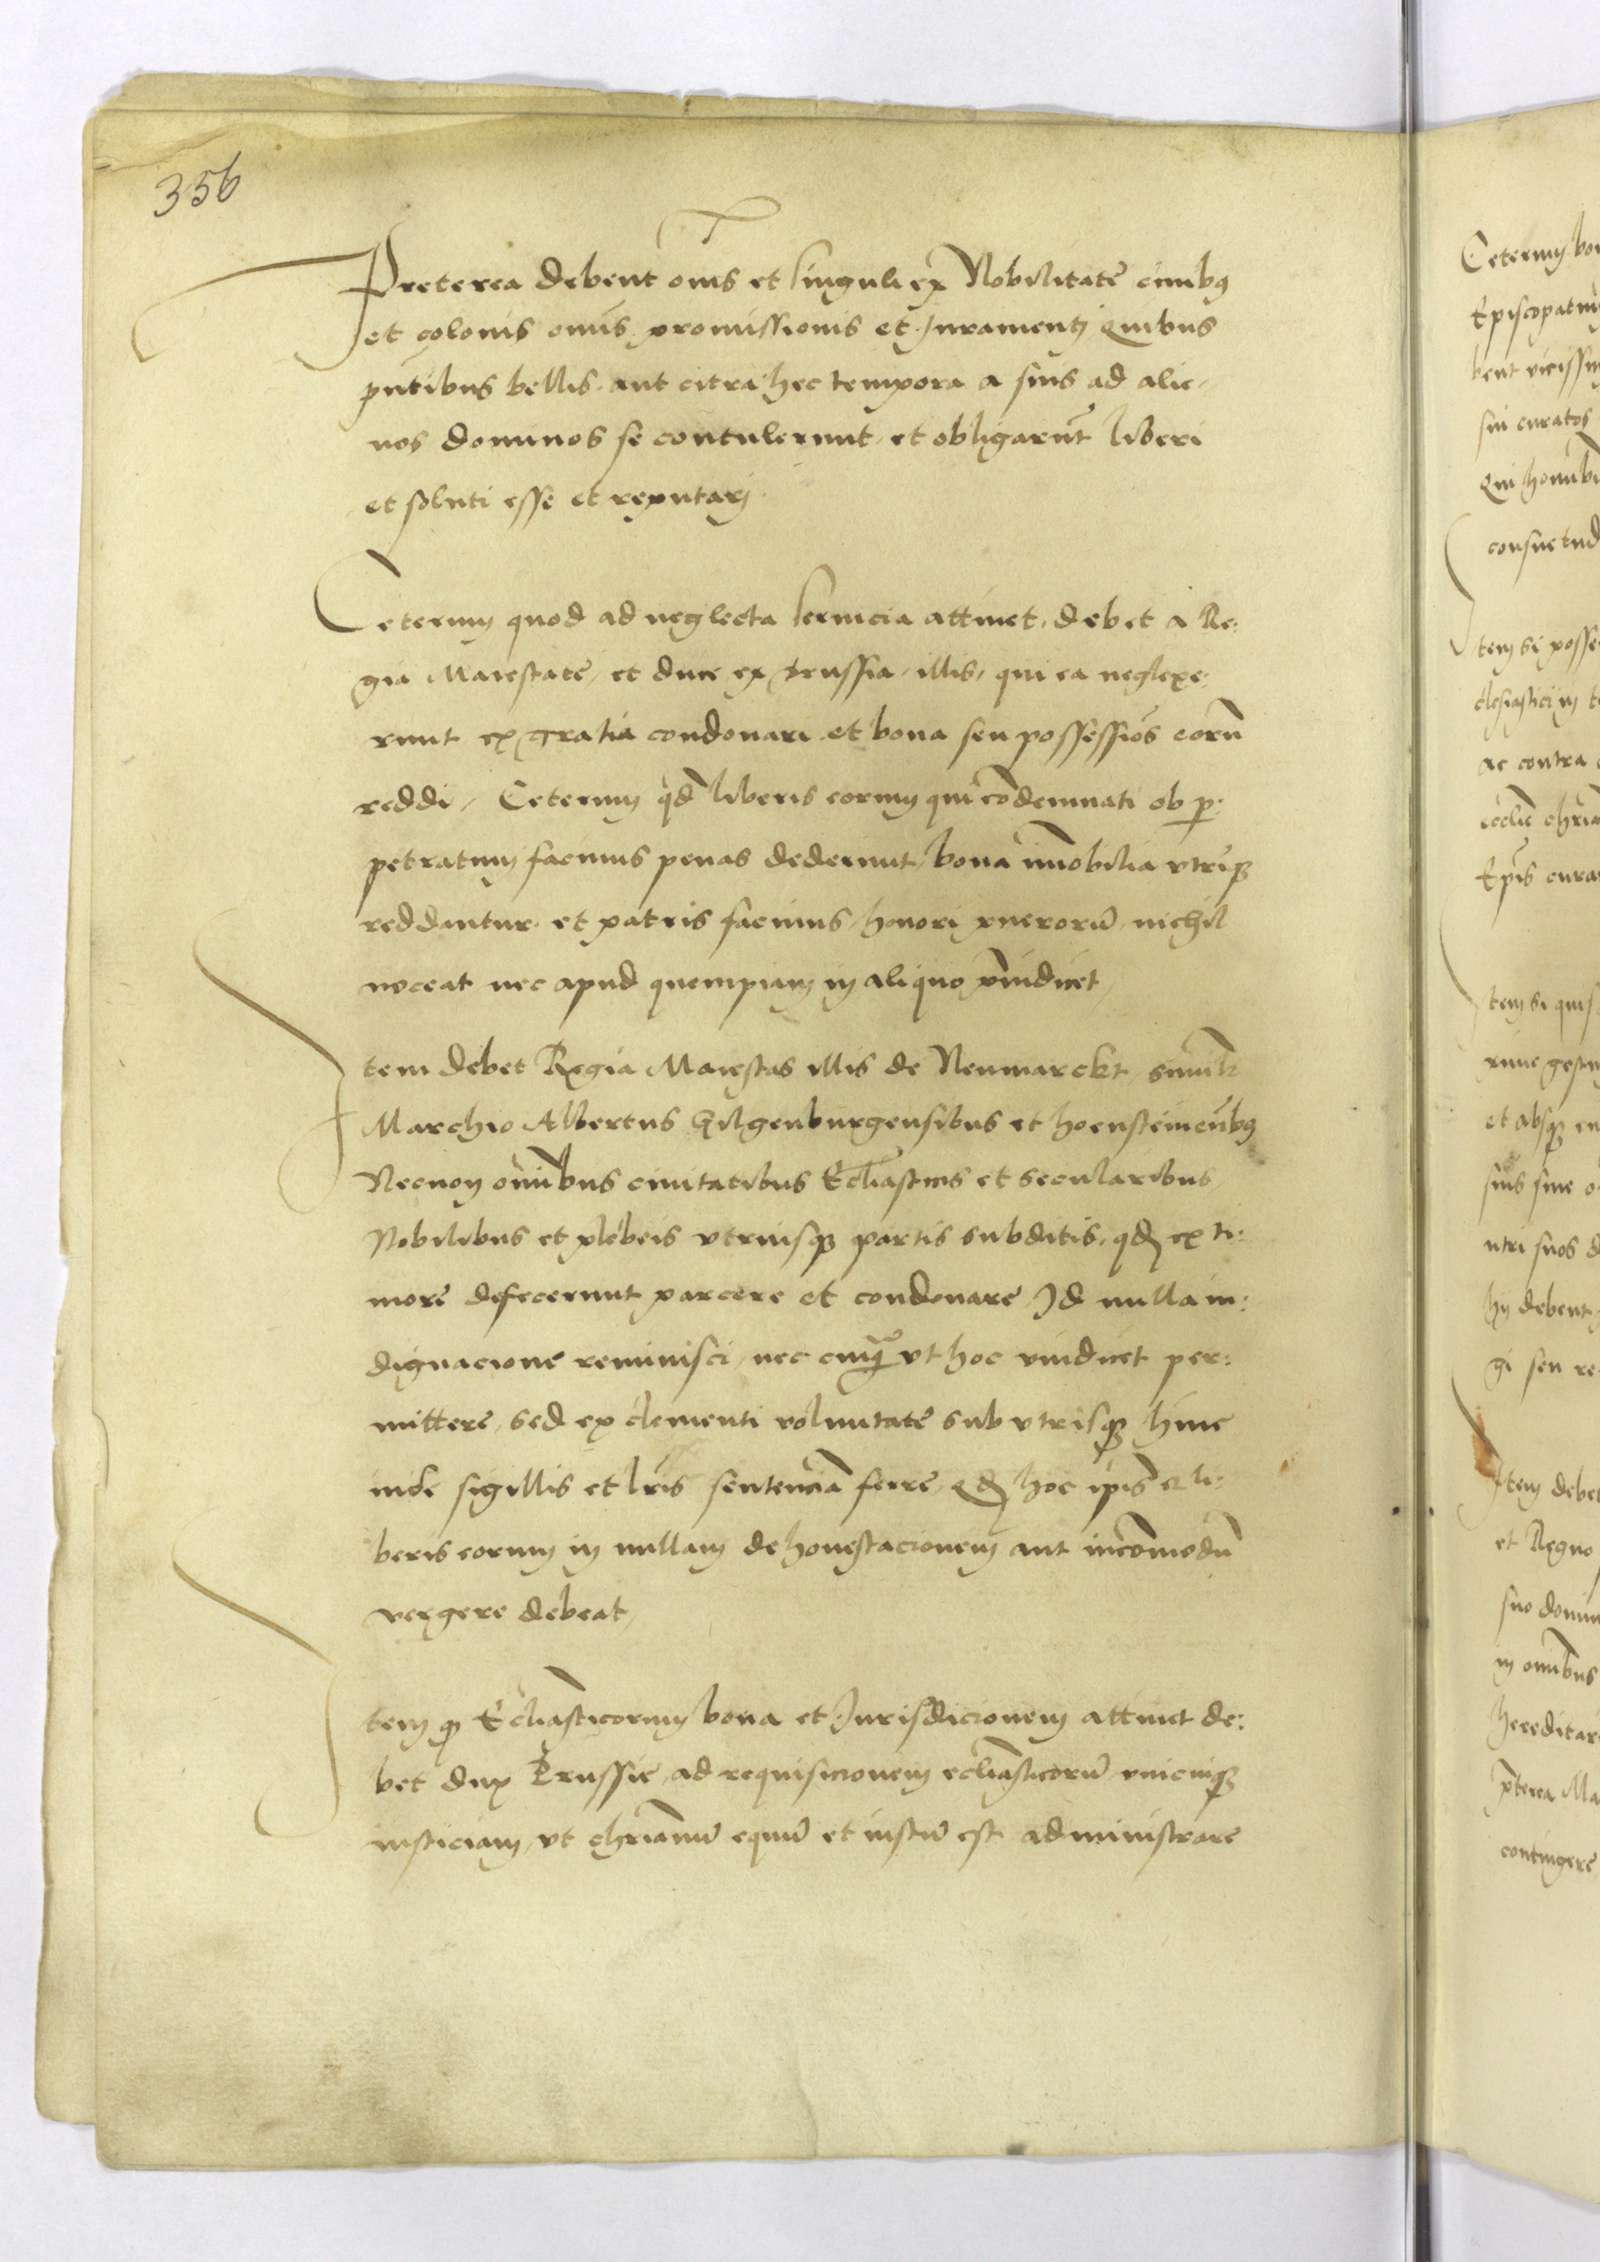 356
Preterea debent om̃s et singuli ex Nobilitate ciuibꝰ
et colonis om̃is promissionis et Juramentj Quibus
pñtibus bellis aut citra hec tempora a suis ad alie-
nos dominos se contulerunt et obligarũt liberi
et soluti esse et reputarj
Ceterum quod ad neglecta seruicia attinet, debet a Re:
gia Maiestate, et duce ex Prussia, illis, qui ea neglexe:
runt ex gratia condonari et bona seu possessiões eorũ
reddi, Ceterum qd̃ liberis eorum qui cõdemnati ob ꝑ:
petratum facinus penas dederunt, bona im̃obilia vtrĩqꝫ
reddantur et patris facinus, honori puerorũ, nichil
noceat nec apud quempiam in aliquo p̃iudicet,
Item debet Regia Maiestas illis de Neumarckt, simil̃r
Marchio Albertus Gilgenburgensibus et hoensteineñbꝰ
Necnon om̃ibus ciuitatibus Ecl̃iasticis et secularibus,
Nobilibus et plebeis vtriusqꝫ partis subditis, qd̃ ex ti:
more defecerunt parcere et condonare, Id nulla in:
dignacione reminisci, nec cuiqᷓ vt hoc vindicet per:
mittere, sed ex clementi voluntate sub vtrisqꝫ hinc
inde sigillis et lr̃is sentenciã ferre, Qd̃ hoc ip̃is & li:
beris eorum in nullam dehonestacionem aut incõmodũ
vergere debeat,
Item ꝙ Ecl̃iasticorum bona et Jurisdicionem attinet de:
bet dux Prussie, ad requisicionem ecl̃iasticorũ vnicuiqꝫ
iusticiam, vt chr̃ianũ equũ et iustũ est administrare
Ceterum
Episcopatum
sui curatos
tem si posse
ac contra
tem si quis
et absqꝫ
suis siue
utri suos
hij debent
gi seu re
Item debet
et Regno
in om̃ibus
p̃terea Ma
contingere